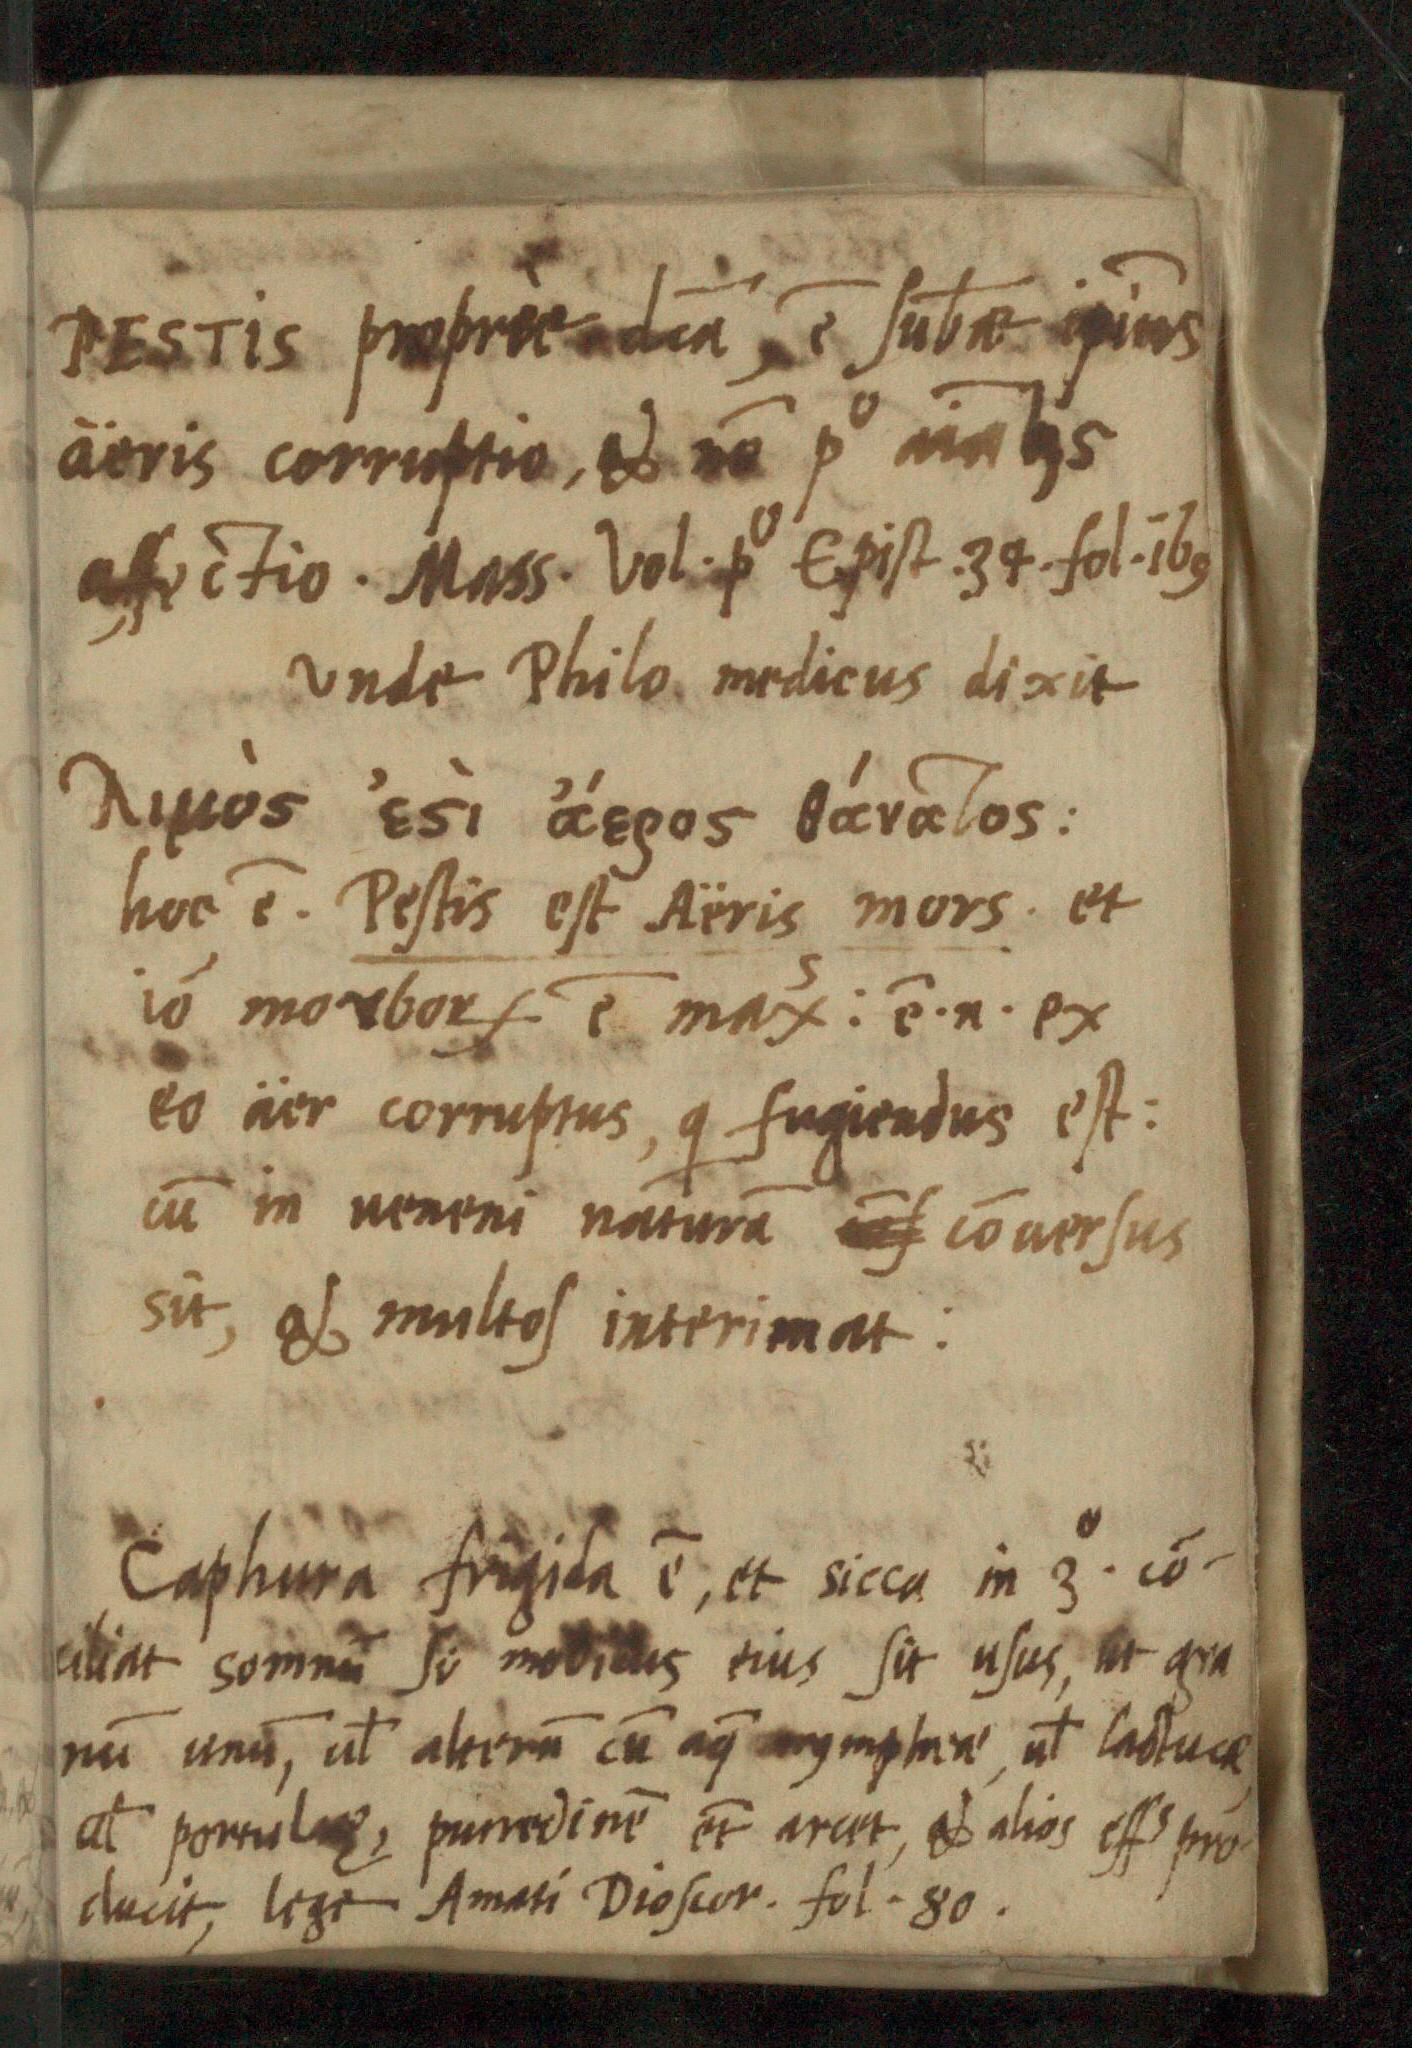 PESTIS propriè dcā, ē subæ ipius
äeris corruptio, & nō pº aialbs
affectio. Mass. Vol. pº Epist. 34. fol. 169
Vnde Philo medicus dixit
Λιμὸς ἐςὶ ἄερος θάνατος:
hoc ē. Pestis est Aëris mors. et
iō morbor ē maxˢ: ē. n. ex
eo äer corruptus, q fugiendus est:
cū in ueneni naturā cōuersus
sit, & multos interimat:
Caphura frigida ē, et sicca in 3º. cō-
ciliat somnū si modicus eius sit usus, ut gra
nū unū, ul alterū cū aq̄ nympheæ, ul lactucæ,
al portulacæ, putredinē et arcet, & alios effˢ pro-
ducit, lege Amati Dioscor. fol. 80.